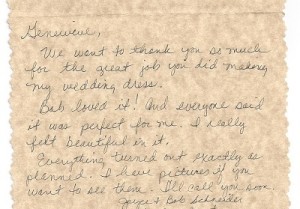 Genevieve,
We want to thank you so much
for the great job you did making
my wedding dress.
Bob loved it! And everyone said
it was perfect for me. I really
felt beautiful in it.
Everything turned out exactly as
planned. I have pictures if you
want to see them. I'll call you soon.
Joyce & Bob Schneider